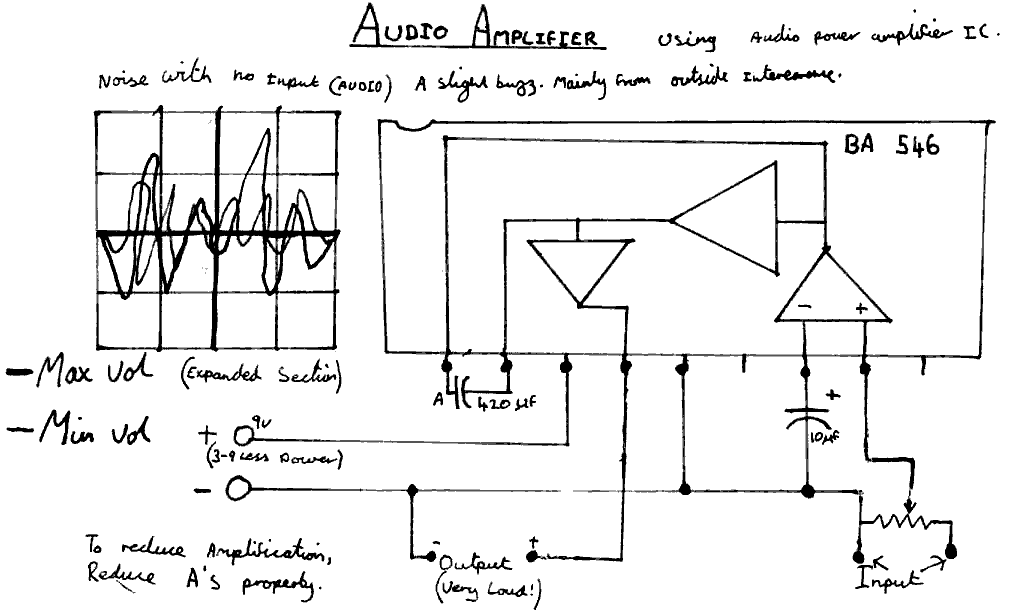 AUDIO AMPLIFIER using Audio power amplifier IC.
Noise with no Input (AUDIO) A slight buzz. Mainly from outside
BA 546
- +
- Max Vol (Expanded Section)
A 420 µF
+
- Min Vol
+ 9V
10µF
(3-9 Less Power)
-
To reduce Amplification,
Reduce A's property.
- Output +
(Very Loud!)
Input